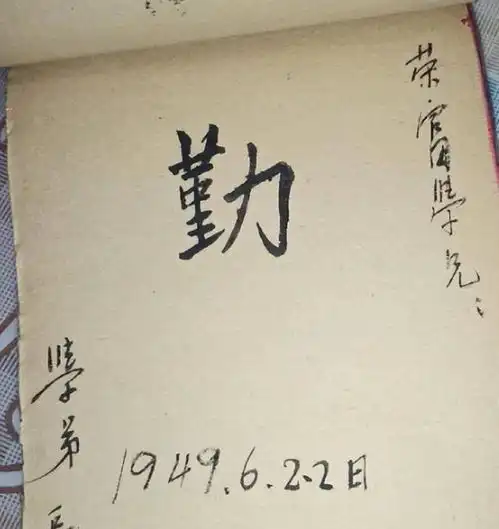 荣富學兄：
勤
學弟
1949.6.22日